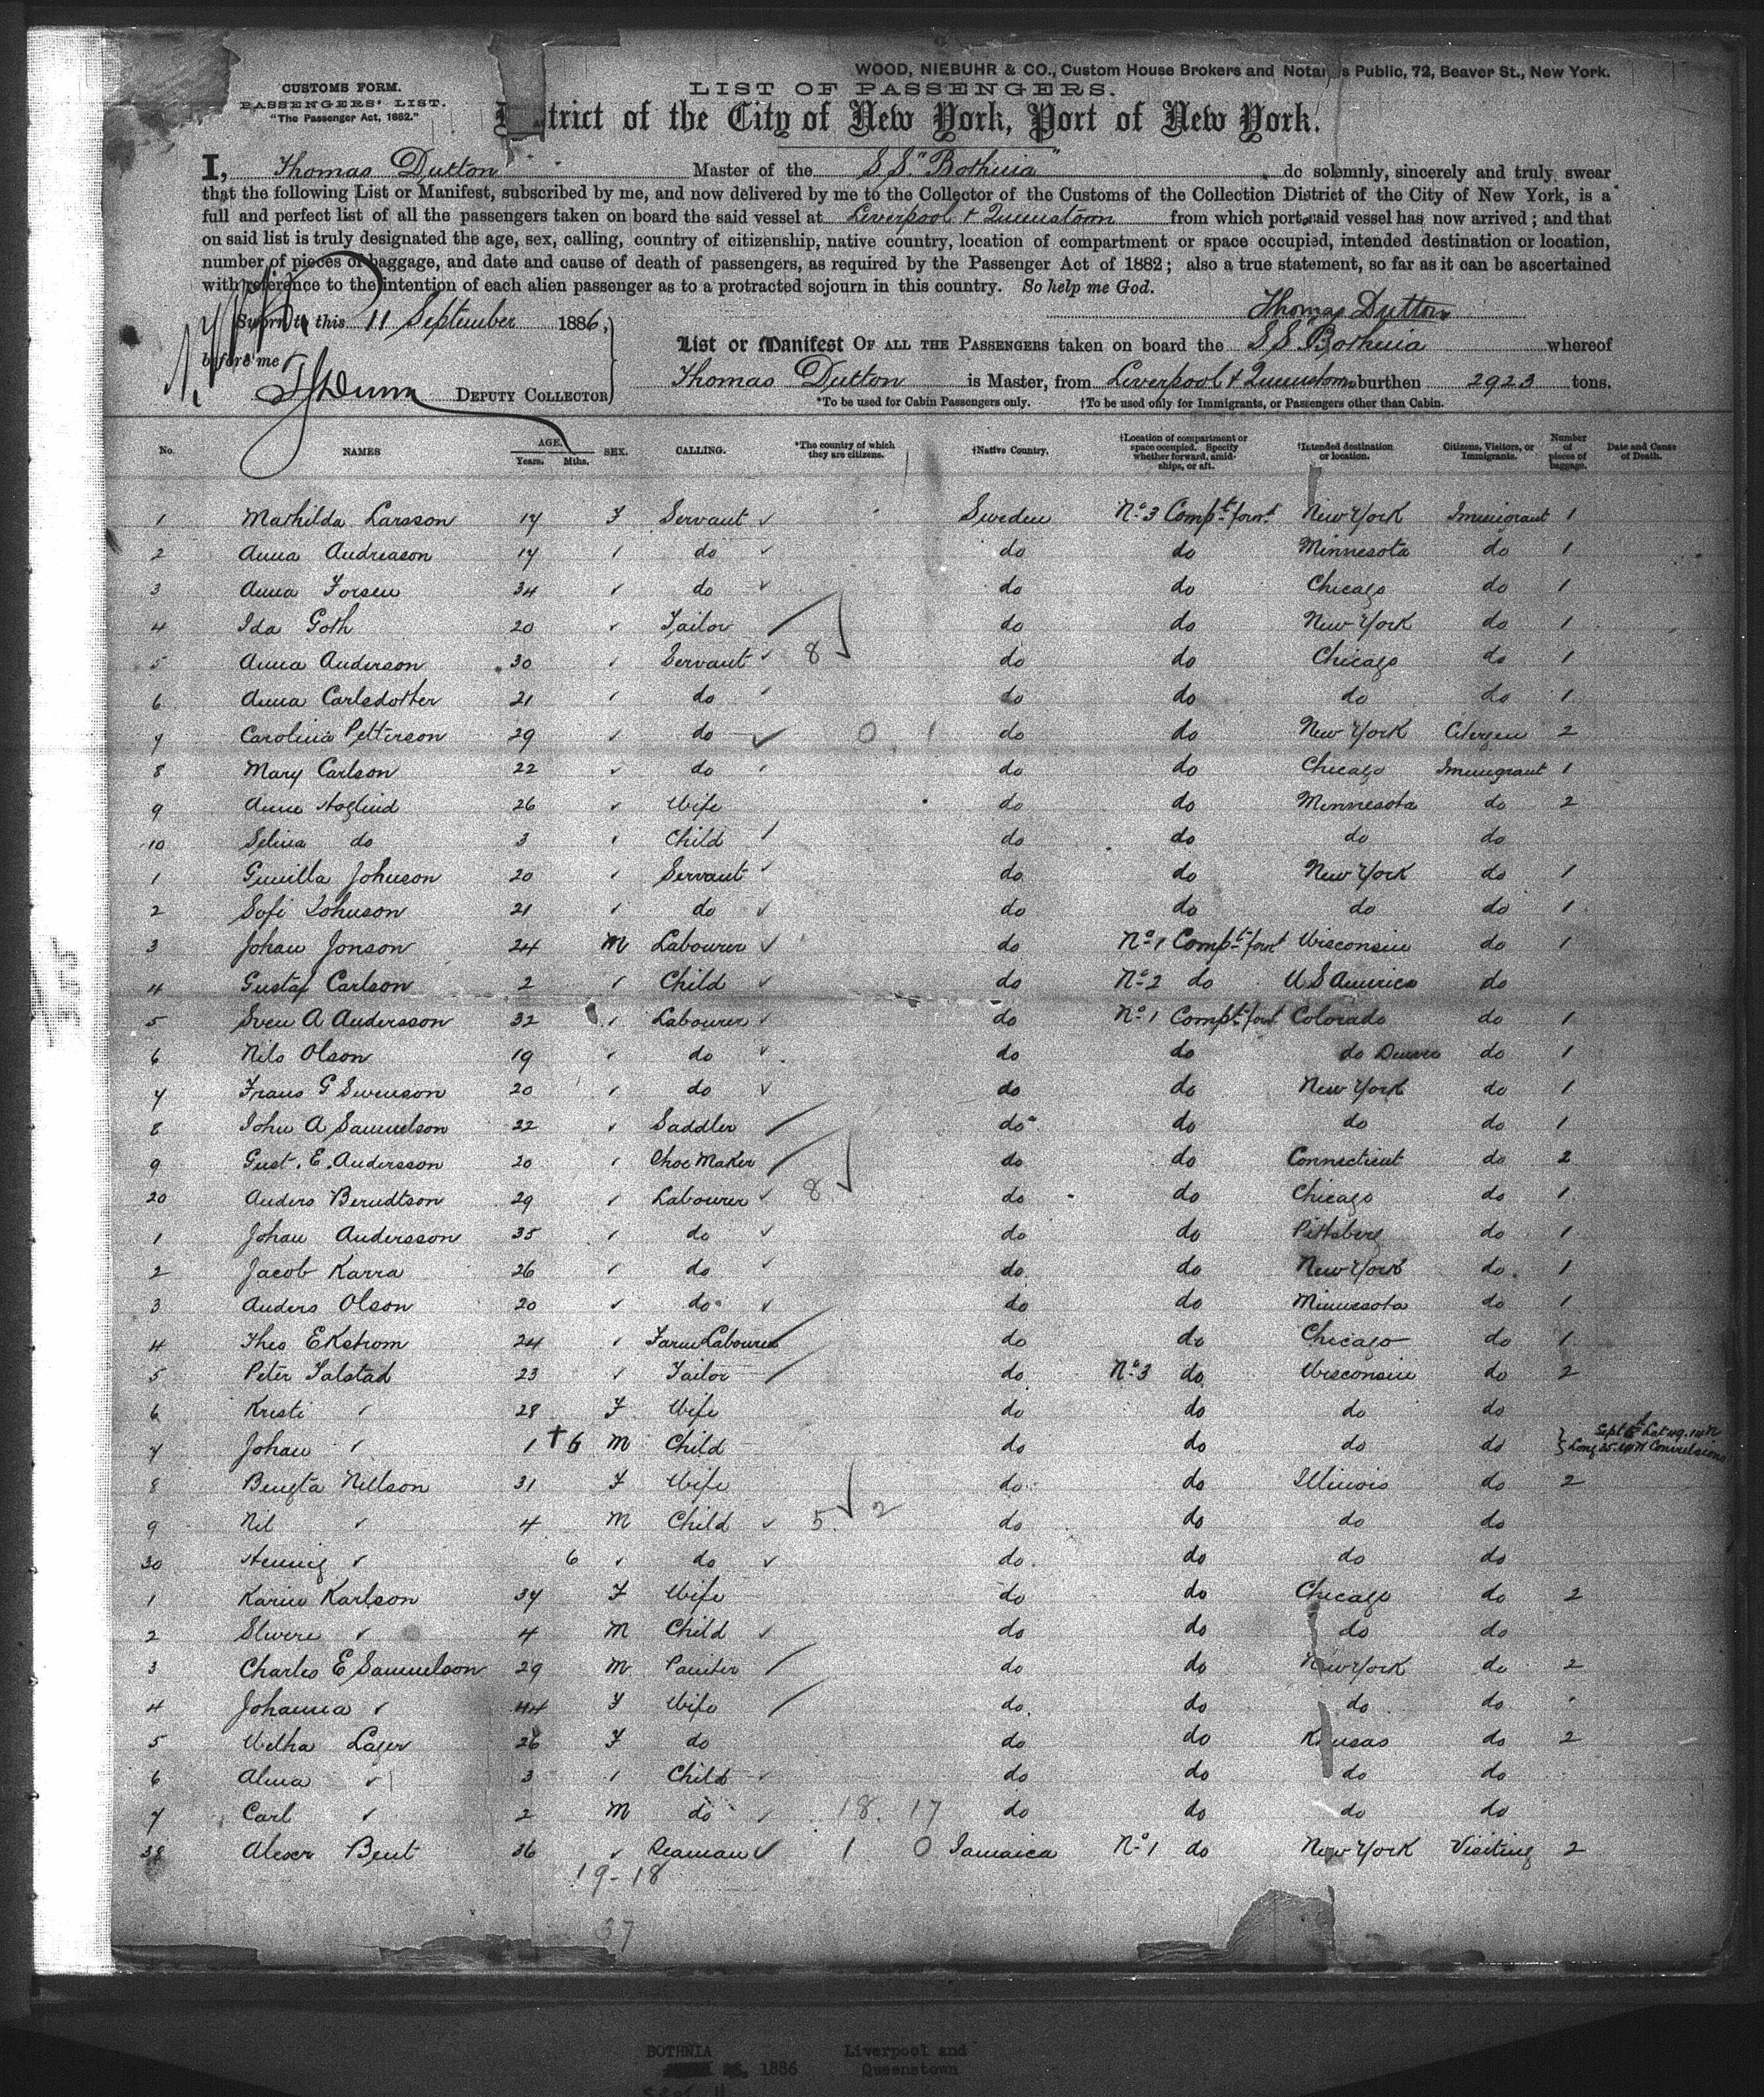 WOOD, NIEBUHR & CO., Custom House Brokers and Notaries Public, 72, Beaver St., New York.
CUSTOMS FORM.
PASSENGERS' LIST.
"The Passenger Act, 1882."
LIST OF PASSENGERS.
District of the City of New York, Port of New York.
I, Thomas Dutton Master of the S.S. "Bothnia" do solemnly, sincerely and truly swear
that the following List or Manifest, subscribed by me, and now delivered by me to the Collector of the Customs of the Collection District of the City of New York, is a
full and perfect list of all the passengers taken on board the said vessel at Liverpool & Queenstown from which port said vessel has now arrived; and that
on said list is truly designated the age, sex, calling, country of citizenship, native country, location of compartment or space occupied, intended destination or location,
number of pieces of baggage, and date and cause of death of passengers, as required by the Passenger Act of 1882; also a true statement, so far as it can be ascertained
with reference to the intention of each alien passenger as to a protracted sojourn in this country. So help me God.
Thomas Dutton
Sworn to this 11 September 1886,
before me
DEPUTY COLLECTOR
List or Manifest OF ALL THE PASSENGERS taken on board the S.S. Bothnia whereof
Thomas Dutton is Master, from Liverpool & Queenstown burthen 2923 tons.
*To be used for Cabin Passengers only. †To be used only for Immigrants, or Passengers other than Cabin.
No. NAMES AGE. Years. Mths. SEX. CALLING. *The country of which they are citizens. †Native Country. †Location of compartment or space occupied. Specify whether forward, amidships, or aft. †Intended destination or location. Citizens, Visitors, or Immigrants. Number of pieces of baggage. Date and Cause of Death.
1 Mathilda Larsson 17 F Servant Sweden No. 3 Compt. forwd New York Immigrant 1
2 Anna Andreason 17 do do do Minnesota do 1
3 Anna Forsen 34 do do do Chicago do 1
4 Ida Goth 20 Tailor do do New York do 1
5 Anna Anderson 30 Servant 8 do do Chicago do 1
6 Anna Carlsdotter 21 do do do do do 1
7 Carolina Petterson 29 do 0 1 do do New York Citizen 2
8 Mary Carlson 22 do do do Chicago Immigrant 1
9 Anna Hoglind 26 Wife do do Minnesota do 2
10 Selina do 3 Child do do do do
1 Gunilla Johnson 20 Servant do do New York do 1
2 Sofi Johnson 21 do do do do do 1
3 Johan Jonson 24 M Labourer do No. 1 Compt. forwt Wisconsin do 1
4 Gustaf Carlson 2 Child do No. 2 do U S America do
5 Sven A Andersson 32 Labourer do No. 1 Compt. forwt Colorado do 1
6 Nils Olson 19 do do do do Denver do 1
7 Frans G Swenson 20 do do do New York do 1
8 John A Samuelson 22 Saddler do do do do 1
9 Gust. E. Andersson 20 Shoe Maker do do Connecticut do 2
20 Anders Berndtson 29 Labourer 8 do do Chicago do 1
1 Johan Andersson 35 do do do Pittsberg do 1
2 Jacob Karra 26 do do do New York do 1
3 Anders Olson 20 do do do Minnesota do 1
4 Theo Ekstrom 24 Farm Labourer do do Chicago do 1
5 Peter Talstad 23 Tailor do No. 3 do Wisconsin do 2
6 Kristi 28 F Wife do do do do
7 Johan 1 † 6 M Child do do do do Sept Lat 49.14 N Long 25. W Convulsions
8 Bengta Nillson 31 F Wife do do Illinois do 2
9 Nil 4 M Child 5 2 do do do do
30 Hennig 6 do do do do do
1 Karin Karlson 37 F Wife do do Chicago do 2
2 4 M Child do do do do
3 Charles E Samuelson 29 M Painter do do New York do 2
4 Johanna 44 F Wife do do do do
5 Lager 26 F do do do Kansas do 2
6 Alma 3 Child do do do do
7 Carl 2 M do 18. 17 do do do do
38 Alexr Bent 36 Seaman 1 0 Jamaica No. 1 do New York Visiting 2
19-18
37
BOTHNIA Liverpool and
1886 Queenstown
Sept 11